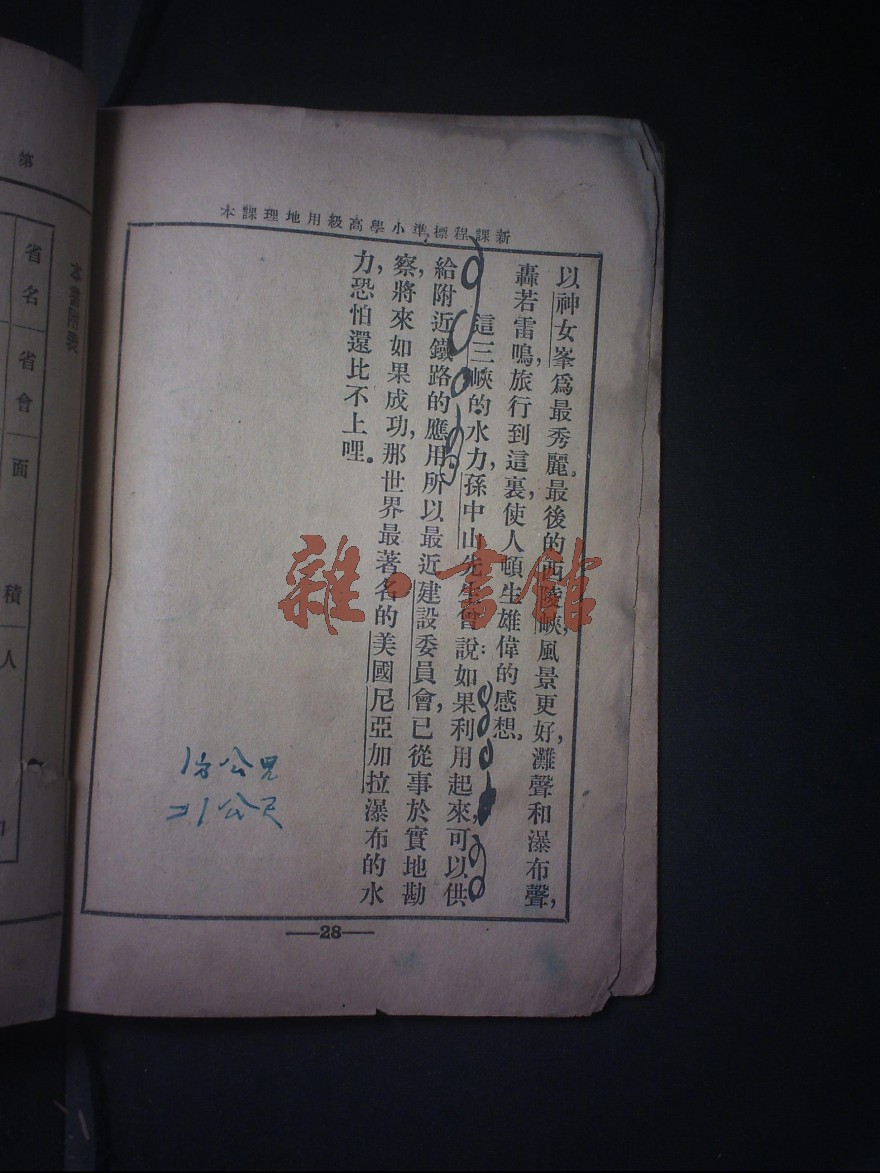 新課程標準小學高級用地理課本
以神女峯爲最秀麗。最後的西陵峽，風景更好，灘聲和瀑布聲，
轟若雷鳴，旅行到這裏，使人頓生雄偉的感想。
這三峽的水力，孫中山先生曾說：如果利用起來，可以供
給附近鐵路的應用，所以最近建設委員會，已從事於實地勘
察，將來如果成功，那世界最著名的美國尼亞加拉瀑布的水
力，恐怕還比不上哩。
28
雜·書館
公尺
第
本書附表
省名
省會
面積
人